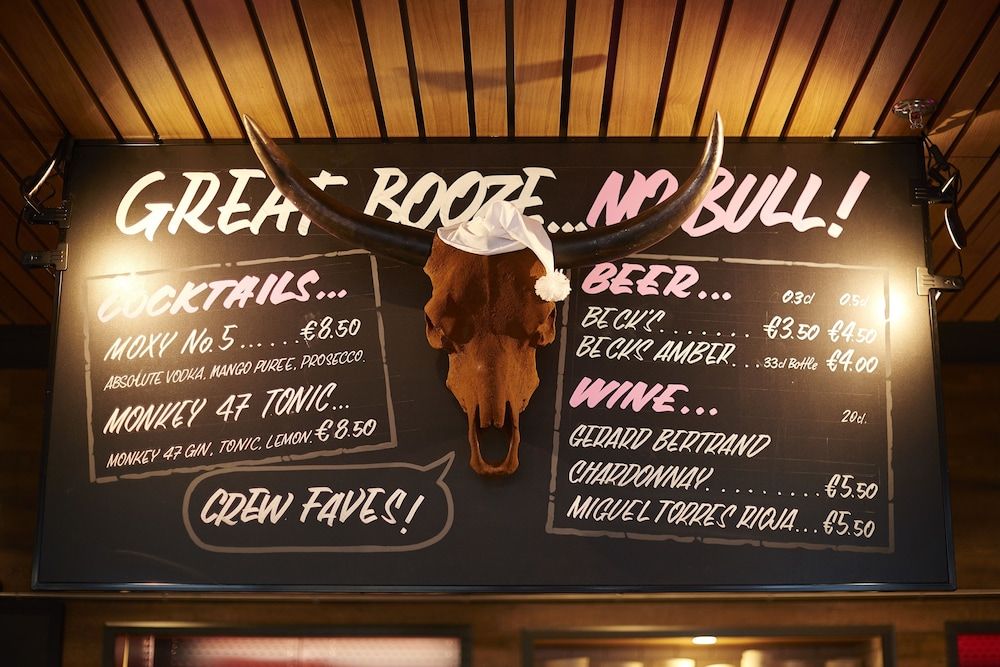 GREAT BOOZE...NO BULL!
COCKTAILS...
MOXY No.5......€8.50
ABSOLUTE VODKA, MANGO PUREE, PROSECCO.
MONKEY 47 TONIC...
MONKEY 47 GIN, TONIC, LEMON. €8.50
CREW FAVES!
BEER... 0.3cl 0.5cl
BECK'S....... €3.50 €4.50
BECKS AMBER...33cl Bottle €4.00
WINE... 20cl.
GERARD BERTRAND
CHARDONNAY.......... €5.50
MIGUEL TORRES RIOJA...€5.50